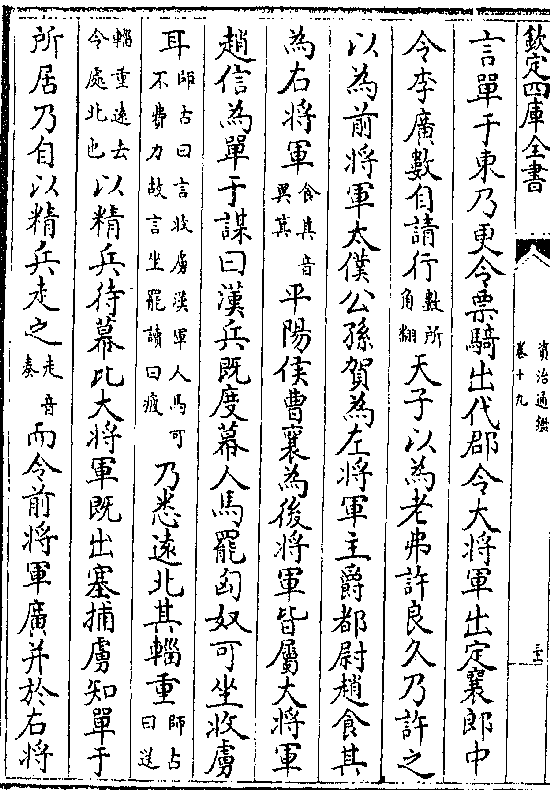 欽定四庫全書
資治通鑑
卷十九
言單于東乃更令票騎出代郡令大將軍出定襄郎中
令李廣數自請行數所角翻天子以為老弗許良久乃許之
以為前將軍太僕公孫賀為左將軍主爵都尉趙食其
為右將軍食其音異基平陽侯曹襄為後將軍皆屬大將軍
趙信為單于謀曰漢兵既度幕人馬罷匈奴可坐收虜
耳師古曰言收虜漢軍人馬可不費力故言坐罷讀曰疲乃悉遠北其輜重師古曰送
輜重遠去令處北也以精兵待幕北大將軍既出塞捕虜知單于
所居乃自以精兵走之走音奏而令前將軍廣并於右將